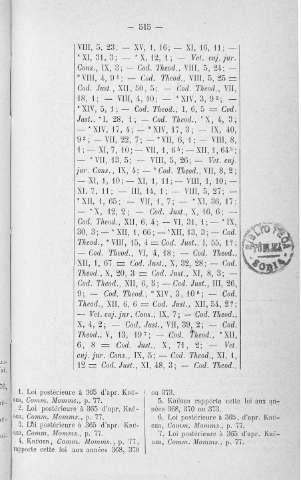 — 515 —
VIII, 5, 23; — XV, 1, 16; — XI, 16, 11; —
*XI, 31, 3; — *X, 12, 1; — Vet. cuj. jur.
Cons., IX, 3; — Cod. Theod., VIII, 5, 24; —
*VIII, 4, 9; — Cod. Theod., VIII, 5, 25 =
Cod. Just., XII, 50, 5; — Cod. Theod., VII,
18, 1; — VIII, 4, 10; — *XIV, 3, 9; —
*XIV, 5, 1; — Cod. Theod., I, 6, 5 = Cod.
Just., I, 28, 1; — Cod. Theod., *X, 4, 3;
— *XIV, 17, 4; — *XIV, 17, 3; — IX, 40,
— VII, 22, 7; — *VII, 6, 1; — VIII, 8,
1; — XI, 7, 10; — VII, 1, 6; — XII, 1, 64;
— *VII, 13, 5; — VIII, 5, 26; — Vet. cuj.
jur. Cons., IX, 4; — *Cod. Theod., VII, 8, 2;
— XI, 1, 10; — XI, 1, 11; — VIII, 1, 10; —
XI, 7, 11; — III, 14, 1; — VIII, 5, 27; —
*XII, 1, 65; — VII, 1, 7; — *XI, 36, 17;
— *X, 12, 2; — Cod. Just., X, 16, 6; —
Cod. Theod., XII, 6, 4; — VI, 31, 1; — *IX,
30, 3; — *XII, 1, 66; — *XII, 13, 3; — Cod.
Theod., *VIII, 15, 4 = Cod. Just., I, 55, 1;
— Cod. Theod., VI, 4, 18; — Cod. Theod.,
XII, 1, 67 = Cod. Just., X, 32, 28; — Cod.
Theod., X, 20, 3 = Cod. Just., XI, 8, 3; —
Cod. Theod., XII, 6, 6; — Cod. Just., III, 26,
9; — Cod. Theod., *XIV, 3, 10; — Cod.
Theod., XII, 6, 6 = Cod. Just., XII, 54, 2;
— Vet. cuj. jur. Cons., IX, 7; — Cod. Theod.,
X, 4, 2; — Cod. Just., VII, 39, 2; — Cod.
Theod., V, 13, 19; — Cod. Theod., *XII,
6, 8 = Cod. Just., X, 71, 2; — Vet.
cuj. jur. Cons., IX, 5; — Cod. Theod., XI, 1,
12 = Cod. Just., XI, 48, 3; — Cod. Theod.,
1. Loi postérieure à 365 d'apr. Krü-
ger, Comm. Momms., p. 77.
2. Loi postérieure à 365 d'apr. Krü-
ger, Comm. Momms., p. 77.
3. Loi postérieure à 365 d'apr. Krü-
ger, Comm. Momms., p. 77.
4. Krüger, Comm. Momms., p. 77,
rapporte cette loi aux années 368, 370
ou 373.
5. Krüger rapporte cette loi aux an-
nées 368, 370 ou 373.
6. Loi postérieure à 365 d'apr. Krü-
ger, Comm. Momms., p. 77.
7. Loi postérieure à 365 d'apr. Krü-
ger, Comm. Momms., p. 77.